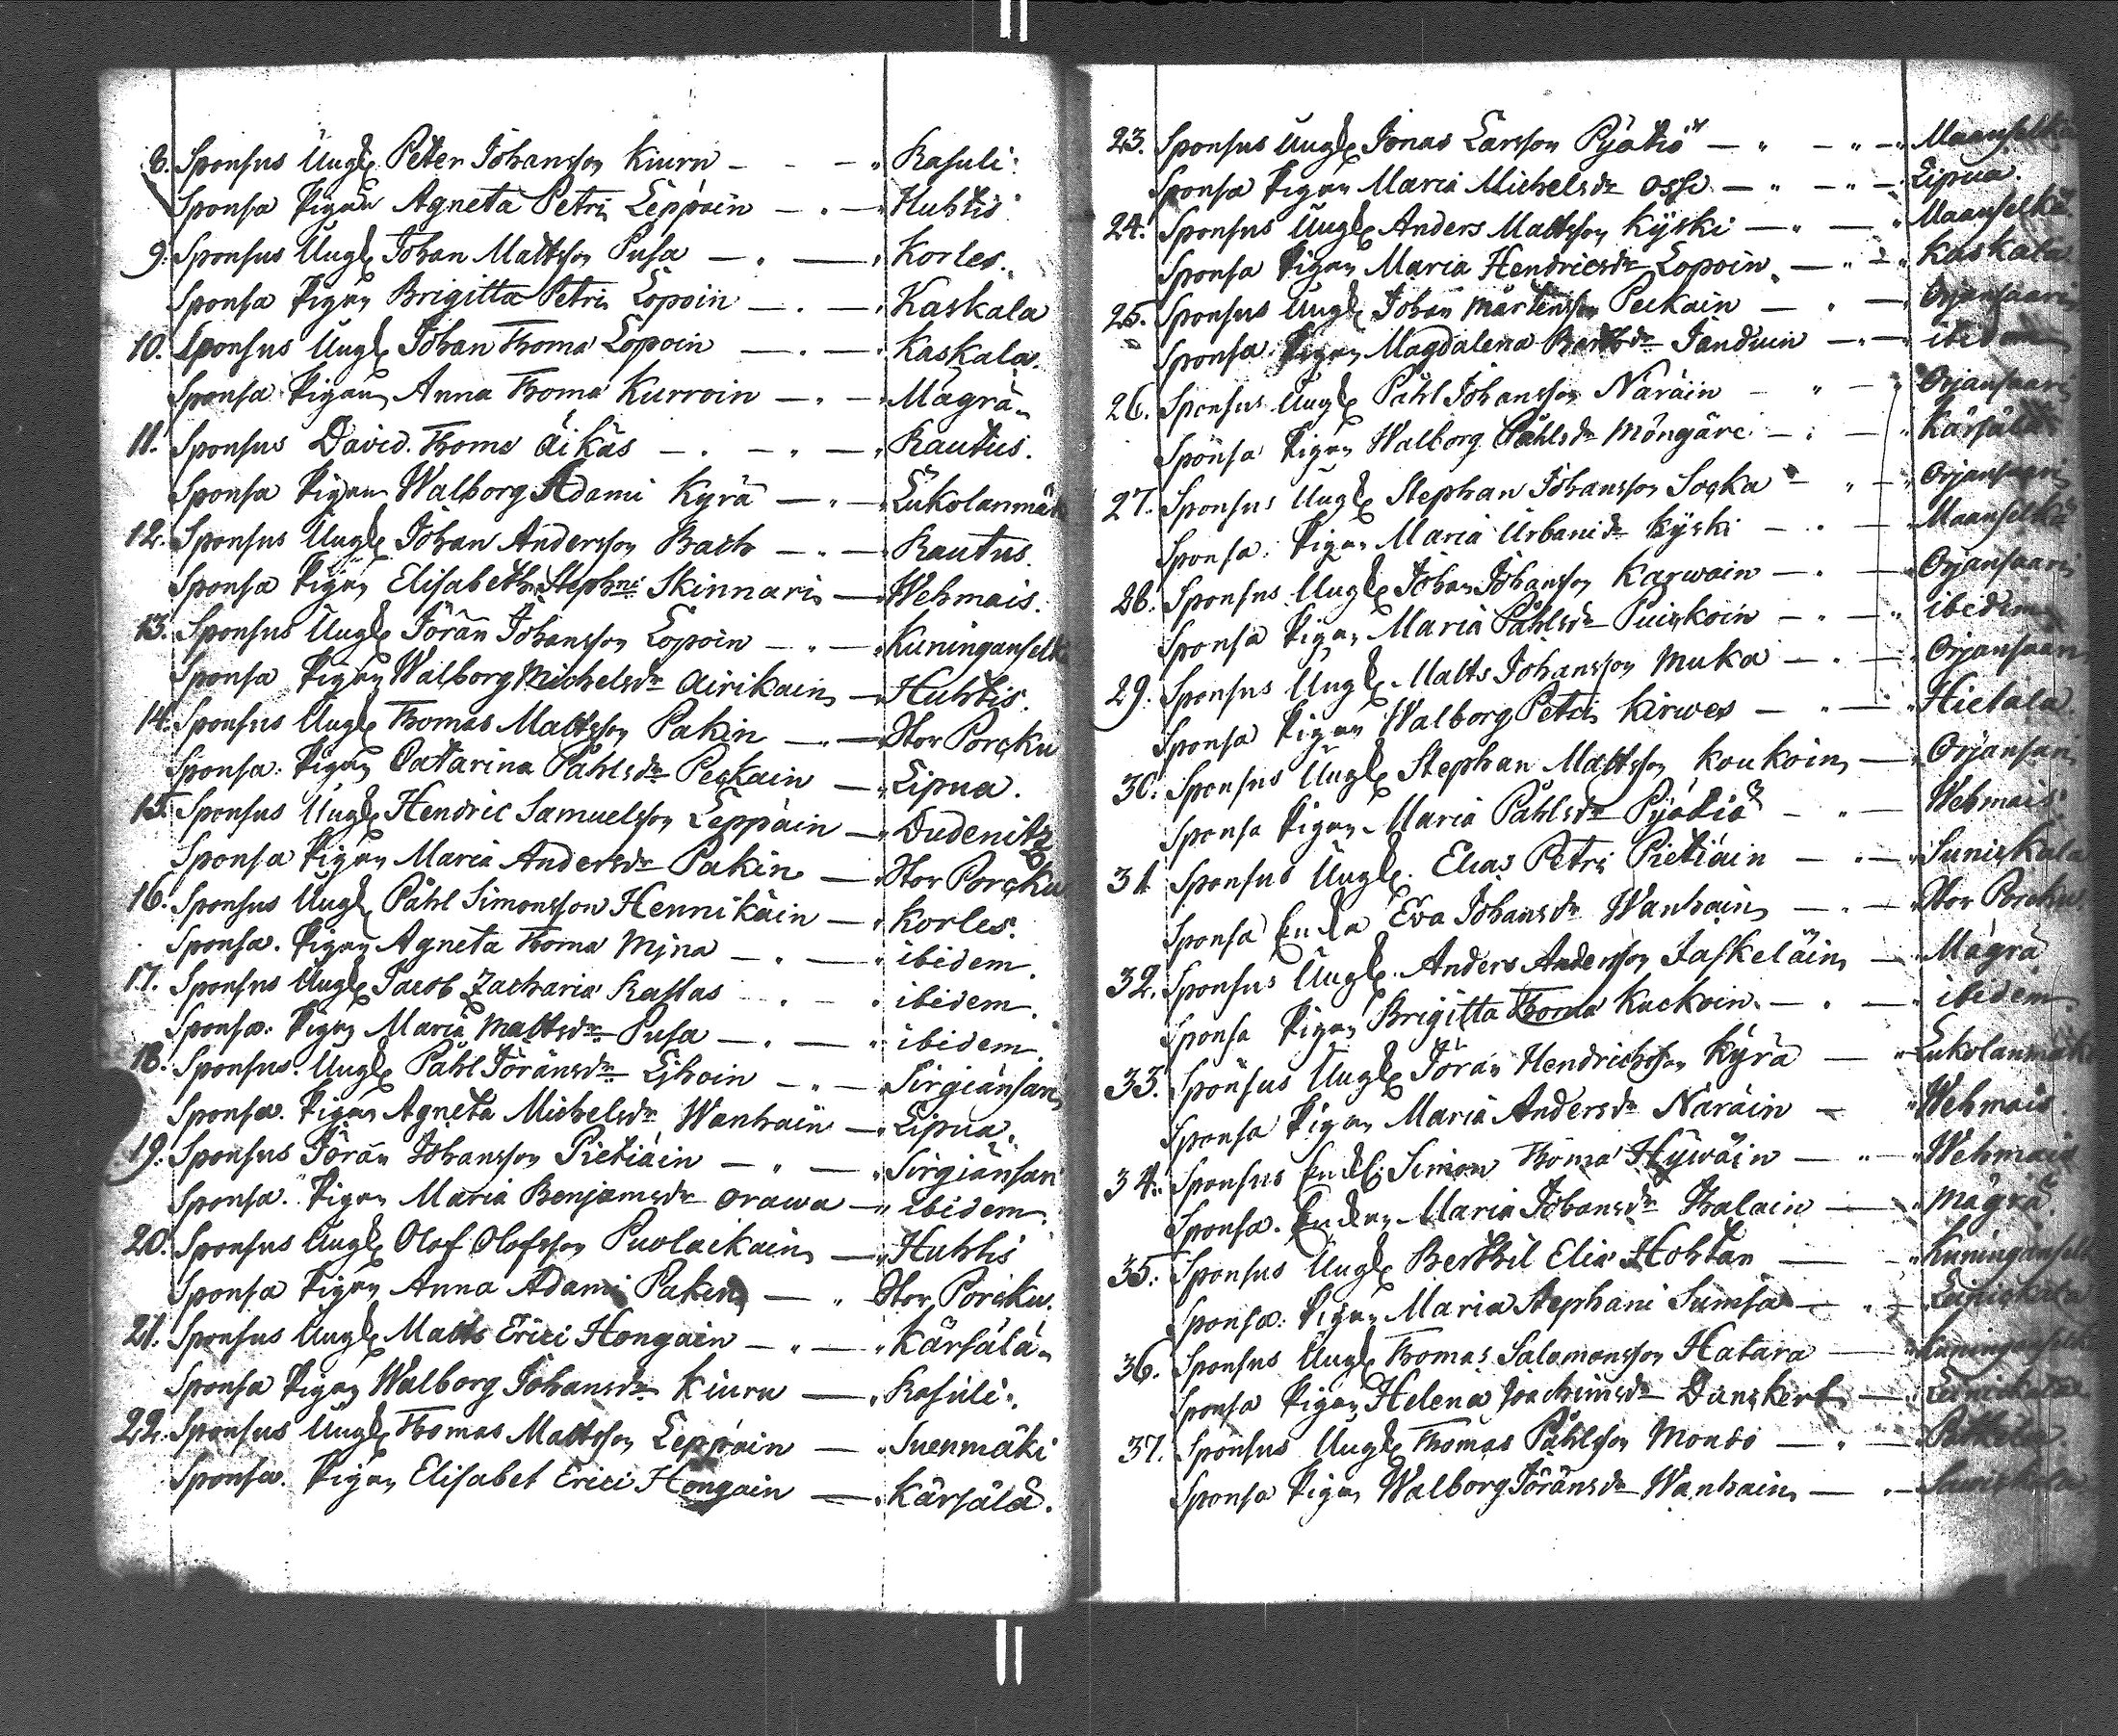 8. Sponsus Ungk Peter Johansson Kiuru - - - " Rasuli.
Sponsa Pigan Agneta Petri Leppäin - . - " Huhtis
9. Sponsus Ungk Johan Mattsson Pusa - . - " Korles.
Sponsa Pigan Brigitta Petri Lopoin - . - " Kaskala
10. Sponsus Ungk Johan Thomæ Lopoin - . - " Kaskala.
Sponsa Pigan Anna Thomæ Kurroin - . - " Mägrä
11. Sponsus David Thomæ Äikäs - . - . - " Rautus.
Sponsa Pigan Walborg Adami Kyrä - " - " Lukolanmäk
12. Sponsus Ungk Johan Andersson - " - Rautus.
Sponsa Pigan Elisabeth Stephni Skinnari - " Wehmais.
13. Sponsus Ungk Jöran Johansson Lopoin - " - " Kuninganselk
Sponsa Pigan Walborg Michelsdr Airikain - Huhtis.
14. Sponsus Ungk Thomas Mattsson Pakin - " - Stor Porcku
Sponsa. Pigan Catarina Påhlsdr Peckain - " Lipua.
15. Sponsus Ungk Hendric Samuelsson Leppäin - " Dudenitz
Sponsa Pigan Maria Andersdr Pakin - " Stor Porcku
16. Sponsus Ungk Påhl Simonsson Hennikäin - " Korles.
Sponsa. Pigan Agneta Thomæ Mjna - . - " ibidem.
17. Sponsus Ungk Jacob Zachariæ Rastas - . - . ibidem.
Sponsa. Pigan Maria Mattsdr Pusa - . - " ibidem.
18. Sponsus. Ungk Påhl Jöransdr - " - Sirgiänsari
Sponsa. Pigan Agneta Michelsdr Wanhain - " Lipua.
19. Sponsus Jöran Johansson Pietiäin - " - " Sirgiänsari
Sponsa. Pigan Maria Benjamsdr Orawa - " ibidem.
20. Sponsus Ungk Olof Olofsson Puolaikain - " Huhtis
Sponsa Pigan Anna Adami Pakin - " Stor Porcku.
21. Sponsus Ungk Matts Erici Hongain - " - " Kärsälä
Sponsa Pigan Walborg Johansdr Kiuru - " Rasuli.
22. Sponsus Ungk Thomas Mattsson Leppäin - " Suenmäki
Sponsa. Pigan Elisabet Erici Hongain - " Kärsälä.
23. Sponsus Ungk Jonas Larsson Pyötiö - " - " - " Maanselkä
Sponsa Pigan Maria Michelsdr Ossi - " - " - Lipua.
24. Sponsus Ungk Anders Mattsson Kyski - " - " Maanselkä
Sponsa Pigan Maria Hendricsdr Lopoin - " - " Kaskala
25. Sponsus Ungk Johan Mårtensson Peckain - " - " Orjansaari
Sponsa Pigan Magdalena Jänduin - " - ibidem
26. Sponsus Ungk Påhl Johansson Näräin - " - " Orjansaari
Sponsa Pigan Walborg Påhlsdr Möngäre - . - " Kärsälä
27. Sponsus Ungk Stephan Johansson Socka - " - " Orjansaari
Sponsa. Pigan Maria Urbanidr Kyski - . - " Maanselkä
28. Sponsus Ungk Johan Johansson Karwain - . - " Orjansaari
Sponsa Pigan Maria Påhlsdr Puickoin - " - " ibidem
29. Sponsus Ungk Matts Johansson Muka - . - " Orjansaari
Sponsa Pigan Walborg Petri Kirwes - " - " Hietala.
30. Sponsus Ungk Stephan Mattsson Koukoin - " Orjansari
Sponsa Pigan Maria Påhlsdr Pyötiö - " - Wehmais
31 Sponsus Ungk. Elias Petri Pietiäin - " - " Suniskala
Sponsa Enka Eva Johansdr Wanhain - " - " Stor Porcku
32. Sponsus Ungk. Anders Andersson Jaskeläin - Mägrä
Sponsa Pigan Brigitta Thomæ Kuckoin. - . - " ibidem
33. Sponsus Ungk Jöran Hendrichsson Kyrä - " Lukolanmäki
Sponsa Pigan Maria Andersdr Näräin - " Wehmais
34. Sponsus Enkl. Simon Thomæ Hywäin - " - " Wehmais
Sponsa. Enkan Maria Johansdr - " Mägrä.
35. Sponsus Ungk Berthil Eliæ Hohtan - - " Kuninganselk
Sponsa. Pigan Maria Stephani Sumsa - " - "
36. Sponsus Ungk Thomas Salamonsson Hatara - " Kuninganselkä
Sponsa Pigan Helena Joachimsdr Dunckert -
37. Sponsus Ungk Thomas Påhlsson Mondo - " -
Sponsa Pigan Walborg Jöransdr Wanhain - " -